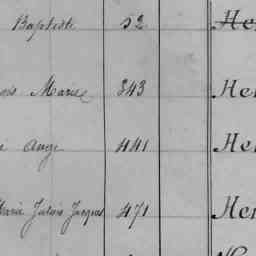 Baptiste 52 He
Marie 343 He
Ange 441 He
Marie Julois Jacques 471 Her